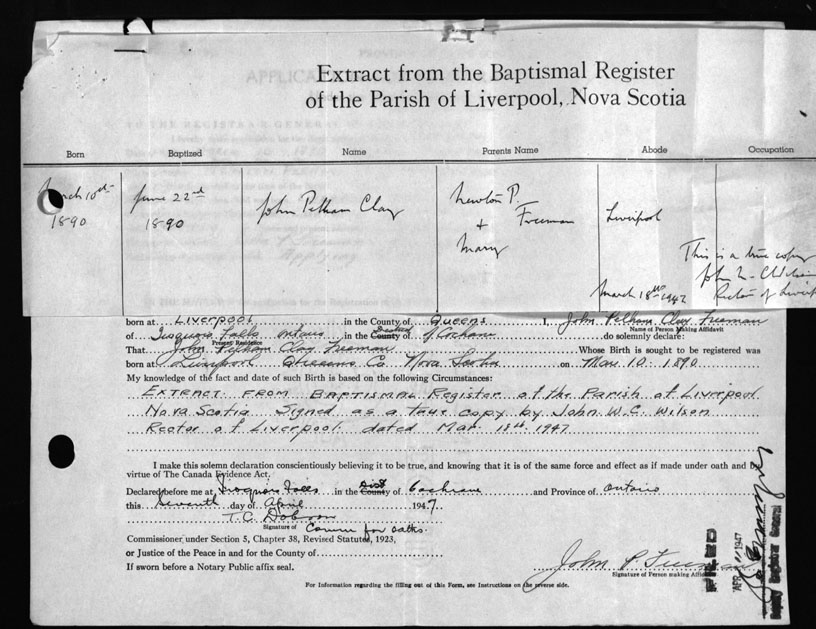 Extract from the Baptismal Register
of the Parish of Liverpool, Nova Scotia
Born Baptized Name Parents Name Abode Occupation
March 10th 1890 June 22nd 1890 John Pelham Clay Newton P. + Mary Freeman Liverpool
This is a true copy
John
March 18th 1947 Rector of Liverp
born at Liverpool in the County of Queens I, John Pelham Clay Freeman
Name of Person Making Affidavit
of Iroquois Falls Ontario in the County District of Cochrane do solemnly declare:
Present Residence
That John Pelham Clay Freeman Whose Birth is sought to be registered was
born at Liverpool Queens Co Nova Scotia on Mar. 10. 1890
My knowledge of the fact and date of such Birth is based on the following Circumstances:
Extract from Baptismal Register of the Parish of Liverpool
Nova Scotia Signed as a true copy by John W.C. Wilson
Rector of Liverpool dated Mar 18th 1947
I make this solemn declaration conscientiously believing it to be true, and knowing that it is of the same force and effect as if made under oath and
virtue of The Canada Evidence Act.
Declared before me at Iroquois Falls in the County Dist of Cochrane and Province of Ontario
this Seventh day of April 1947.
T.C. Dobson
Signature of Comm for oaths.
Commissioner under Section 5, Chapter 38, Revised Statutes, 1923,
or Justice of the Peace in and for the County of
If sworn before a Notary Public affix seal.
John P Freeman
Signature of Person making Affidavit
For Information regarding the filling out of this Form, see Instructions on the reverse side.
APR 1947
Deputy Registrar General